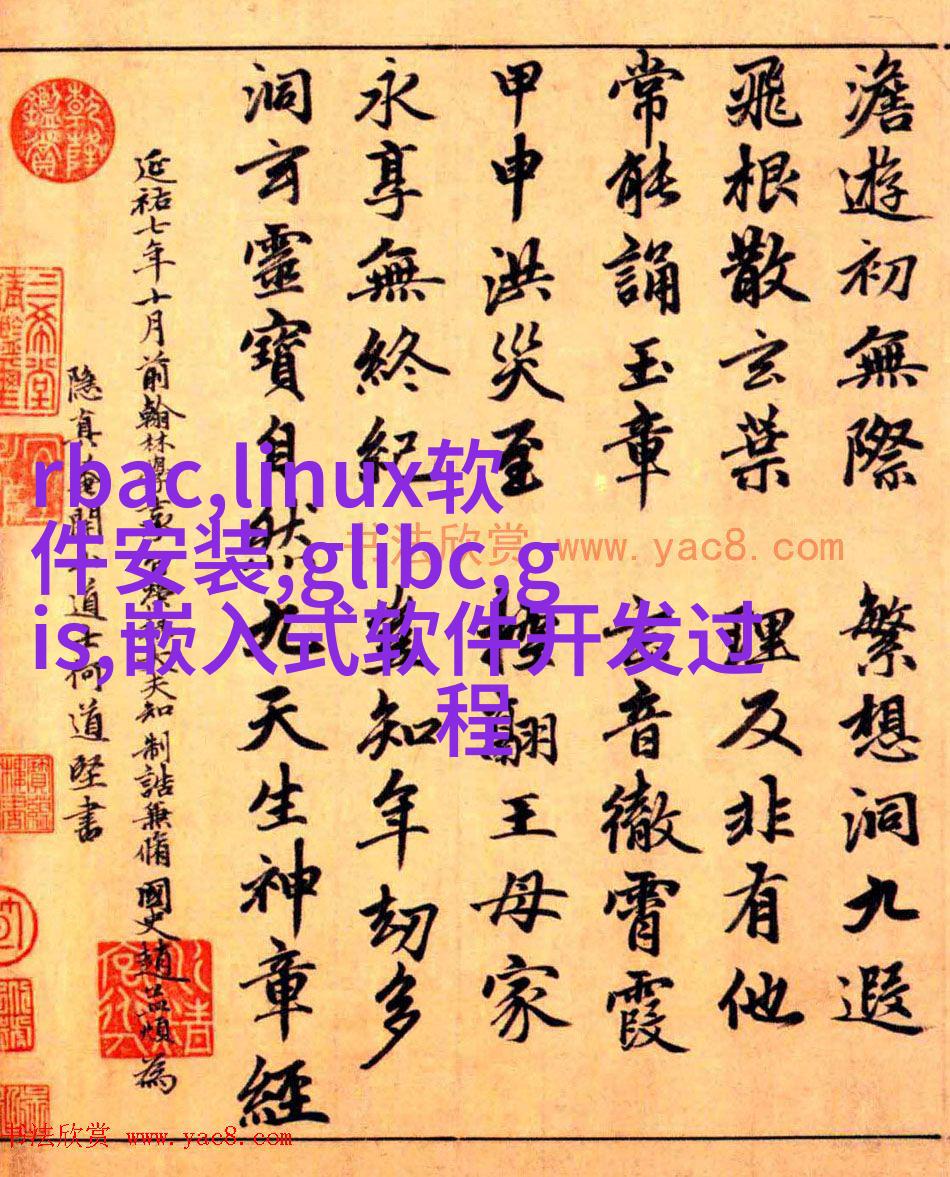 澹遊初無際 繁想洞九遐
飛根散玄葉 理反非有他
常能誦玉章 玄音徹霄霞
甲申洪災至 翮王母家
永享無終紀 知年劫多
洞玄靈寶自然九天生神章經
延祐七年十月前翰林 大夫知制誥兼脩國史趙孟頫為
隐真 道士何道堅書
乾隆鑑賞
三希堂精鑑璽
rbac,linux软
件安装,glibc,g
is,嵌入式软件开发过
程
书法欣赏 www.yac8.com
书法欣赏 www.yac8.com